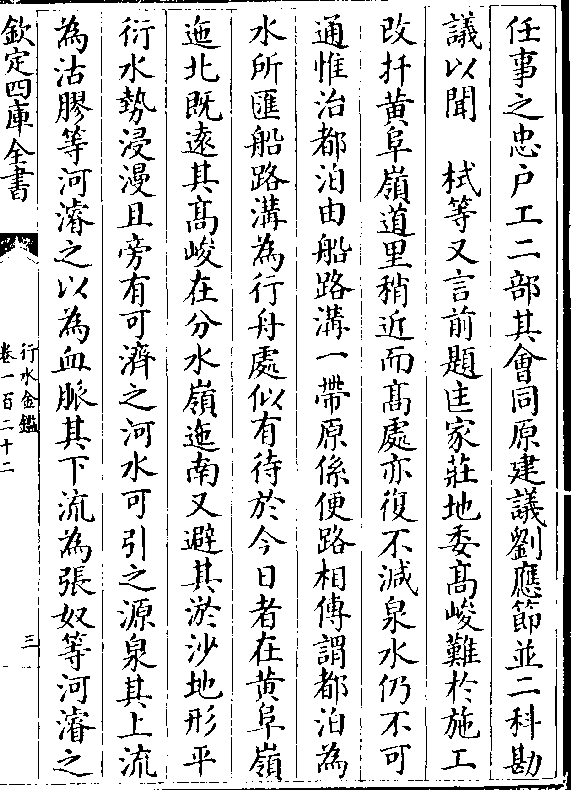 任事之忠户工二部其會同原建議劉應節並二科勘
議以聞　栻等又言前題匡家莊地委髙峻難於施工
改扦黄阜嶺道里稍近而髙處亦復不減泉水仍不可
通惟治都泊由船路溝一帶原係便路相傳謂都泊為
水所匯船路溝為行舟處似有待於今日者在黄阜嶺
迤北既逺其髙峻在分水嶺迤南又避其淤沙地形平
衍水勢浸漫且旁有可濟之河水可引之源泉其上流
為沽膠等河濬之以為血脈其下流為張奴等河濬之
欽定四庫全書
行水金鑑
卷一百二十二
三